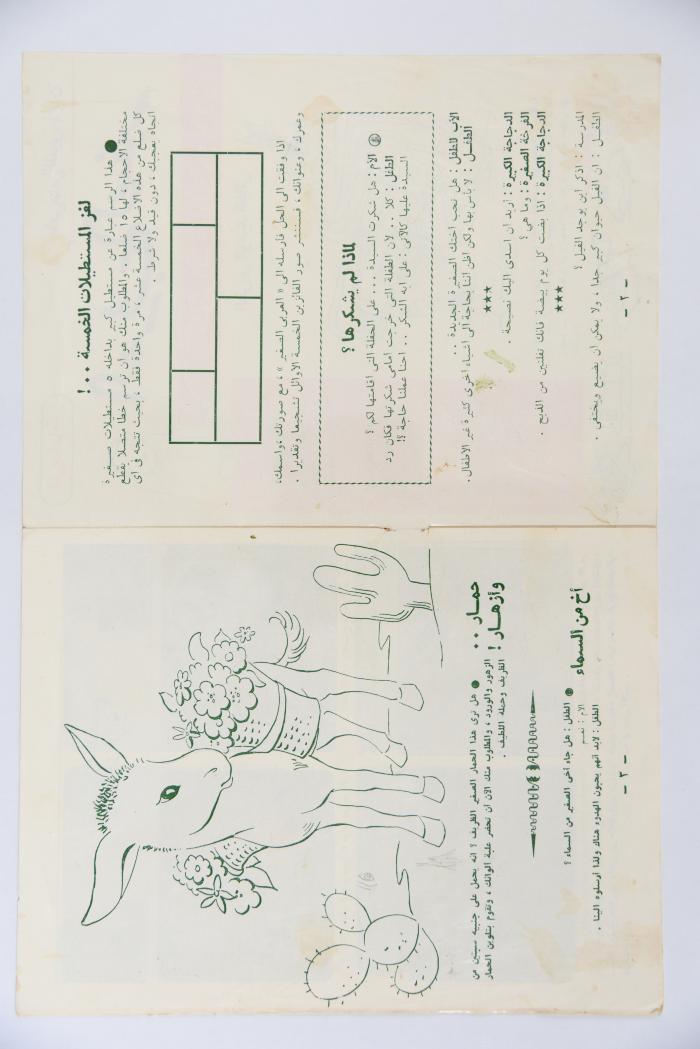 لغز المستطيلات الخمسة ٠٠ !
● هذا الرسم عبارة عن مستطيل كبير بداخله ٥ مستطيلات صغيرة
مختلفة الاحجام ، لها ١٥ ضلعا ٠ والمطلوب منك هو أن ترسم خطا متصلا يقطع
كل ضلع من هذه الاضلاع الخمسة عشر ، مرة واحدة فقط ، بحيث تتجه فى أى
اتجاه يعجبك ، دون قيد ولا شرط ٠
اذا وفقت الى الحل فارسله الى « العربى الصغير » ، مع صورتك ، واسمك ،
وعمرك ، وعنوانك ، فستنشر صور الفائزين الخمسة الاوائل تشجيعا وتقديرا ٠
لماذا لم يشكرها ؟
الام : هل شكرت السيدة ٠٠٠ على الحفلة التى أقامتها لكم ؟
الطفل : كلا ٠٠ لان الطفلة التى خرجت امامى شكرتها فكان رد
السيدة عليها كالآتى : على ايه الشكر ٠٠ احنا عملنا حاجة ؟!
الأب لأطفل : هل تحب اختك الصغيرة الجديدة ٠٠
الطفل : لا بأس بها ولكن أظن اننا بحاجة الى أشياء اخرى كثيرة غير الاطفال ٠
★★★
الدجاجة الكبيرة : أريد ان اسدى اليك نصيحة ٠
الفرخة الصغيرة : وما هى ؟
الدجاجة الكبيرة : اذا بضت كل يوم بيضة فانك تفلتين من الذبح ٠
★★★
المدرسة : اذكر اين يوجد الفيل ؟
الطفل : ان الفيل حيوان كبير جدا ٠ ولا يمكن ان يضيع ويختفى ٠
- ٢ -
حمار ٠٠
وأزهار !
● هل ترى هذا الحمار الصغير الظريف ؟ انه يحمل على جنبيه سبتين من
الزهور والورود ، والمطلوب منك الآن أن تحضر علبة الوانك ، وتقوم بتلوين الحمار
الظريف وحمله اللطيف ٠
أخ من السماء
الطفل : هل جاء أخى الصغير من السماء ؟
الأم : نعم
الطفل : لابد أنهم يحبون الهدوء هناك ولذا أرسلوه الينا ٠
- ٣ -